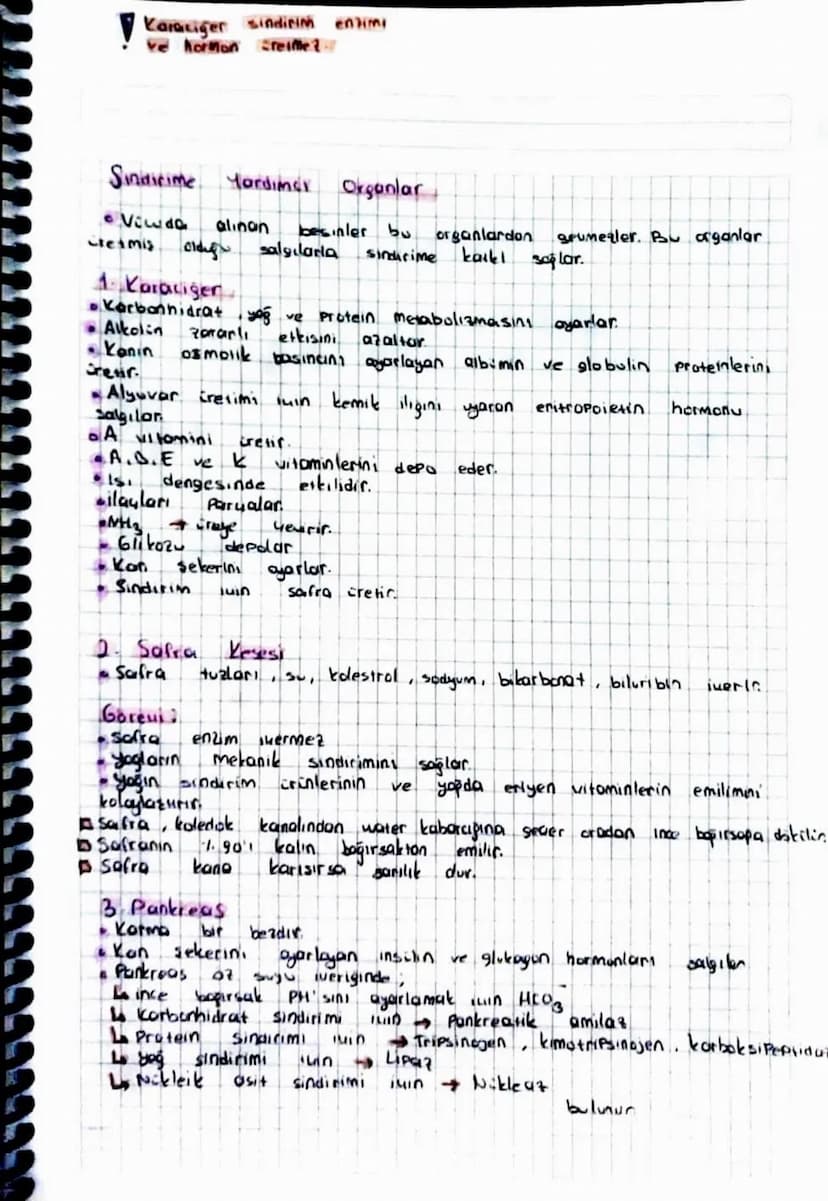 ! Karaciğer sindirim enzimi
ve hormon üretmez.
Sindirime Yardımcı Organlar
• Vücuda alınan besinler bu organlardan geçmezler. Bu organlar
üretmiş olduğu salgılarla sindirime katkı sağlar.
1. Karaciğer
• Karbonhidrat, yağ ve protein metabolizmasını ayarlar.
• Alkolün zararlı etkisini azaltır.
• Kanın osmotik basıncını ayarlayan albümin ve globulin proteinlerini
üretir.
• Alyuvar üretimi için kemik iliğini uyaran eritropoietin hormonu
salgılar.
• A vitamini üretir.
• A.D.E ve K vitaminlerini depo eder.
• Isı dengesinde etkilidir.
• ilaçları parçalar.
• NH3 → üreye çevirir.
• Glikozu depolar
• Kan şekerini ayarlar.
• Sindirim için safra üretir.
2. Safra Kesesi
• Safra tuzları, su, kolestrol, sodyum, bikarbonat, biluribin içerir.
Görevi:
• Safra enzim içermez
• Yağların mekanik sindirimini sağlar.
• Yağın sindirim ürünlerinin ve yağda eriyen vitaminlerin emilimini
kolaylaştırır.
Safra, koledok kanalından water kabarcığına geçer oradan ince bağırsağa dökülür
Safranın %90'ı kalın bağırsaktan emilir.
Safra kana karışırsa sarılık olur.
3. Pankreas
• Karma bir bezdir.
• Kan şekerini ayarlayan insülin ve glukagon hormonları salgılar
• Pankreas öz suyu içeriğinde;
↳ ince bağırsak PH'sını ayarlamak için HCO3-
↳ Karbonhidrat sindirimi için → Pankreatik amilaz
↳ Protein sindirimi için → Tripsinojen, kimotripsinojen, karboksipeptidaz
↳ Yağ sindirimi için → Lipaz
↳ Nükleik asit sindirimi için → Nükleaz
bulunur